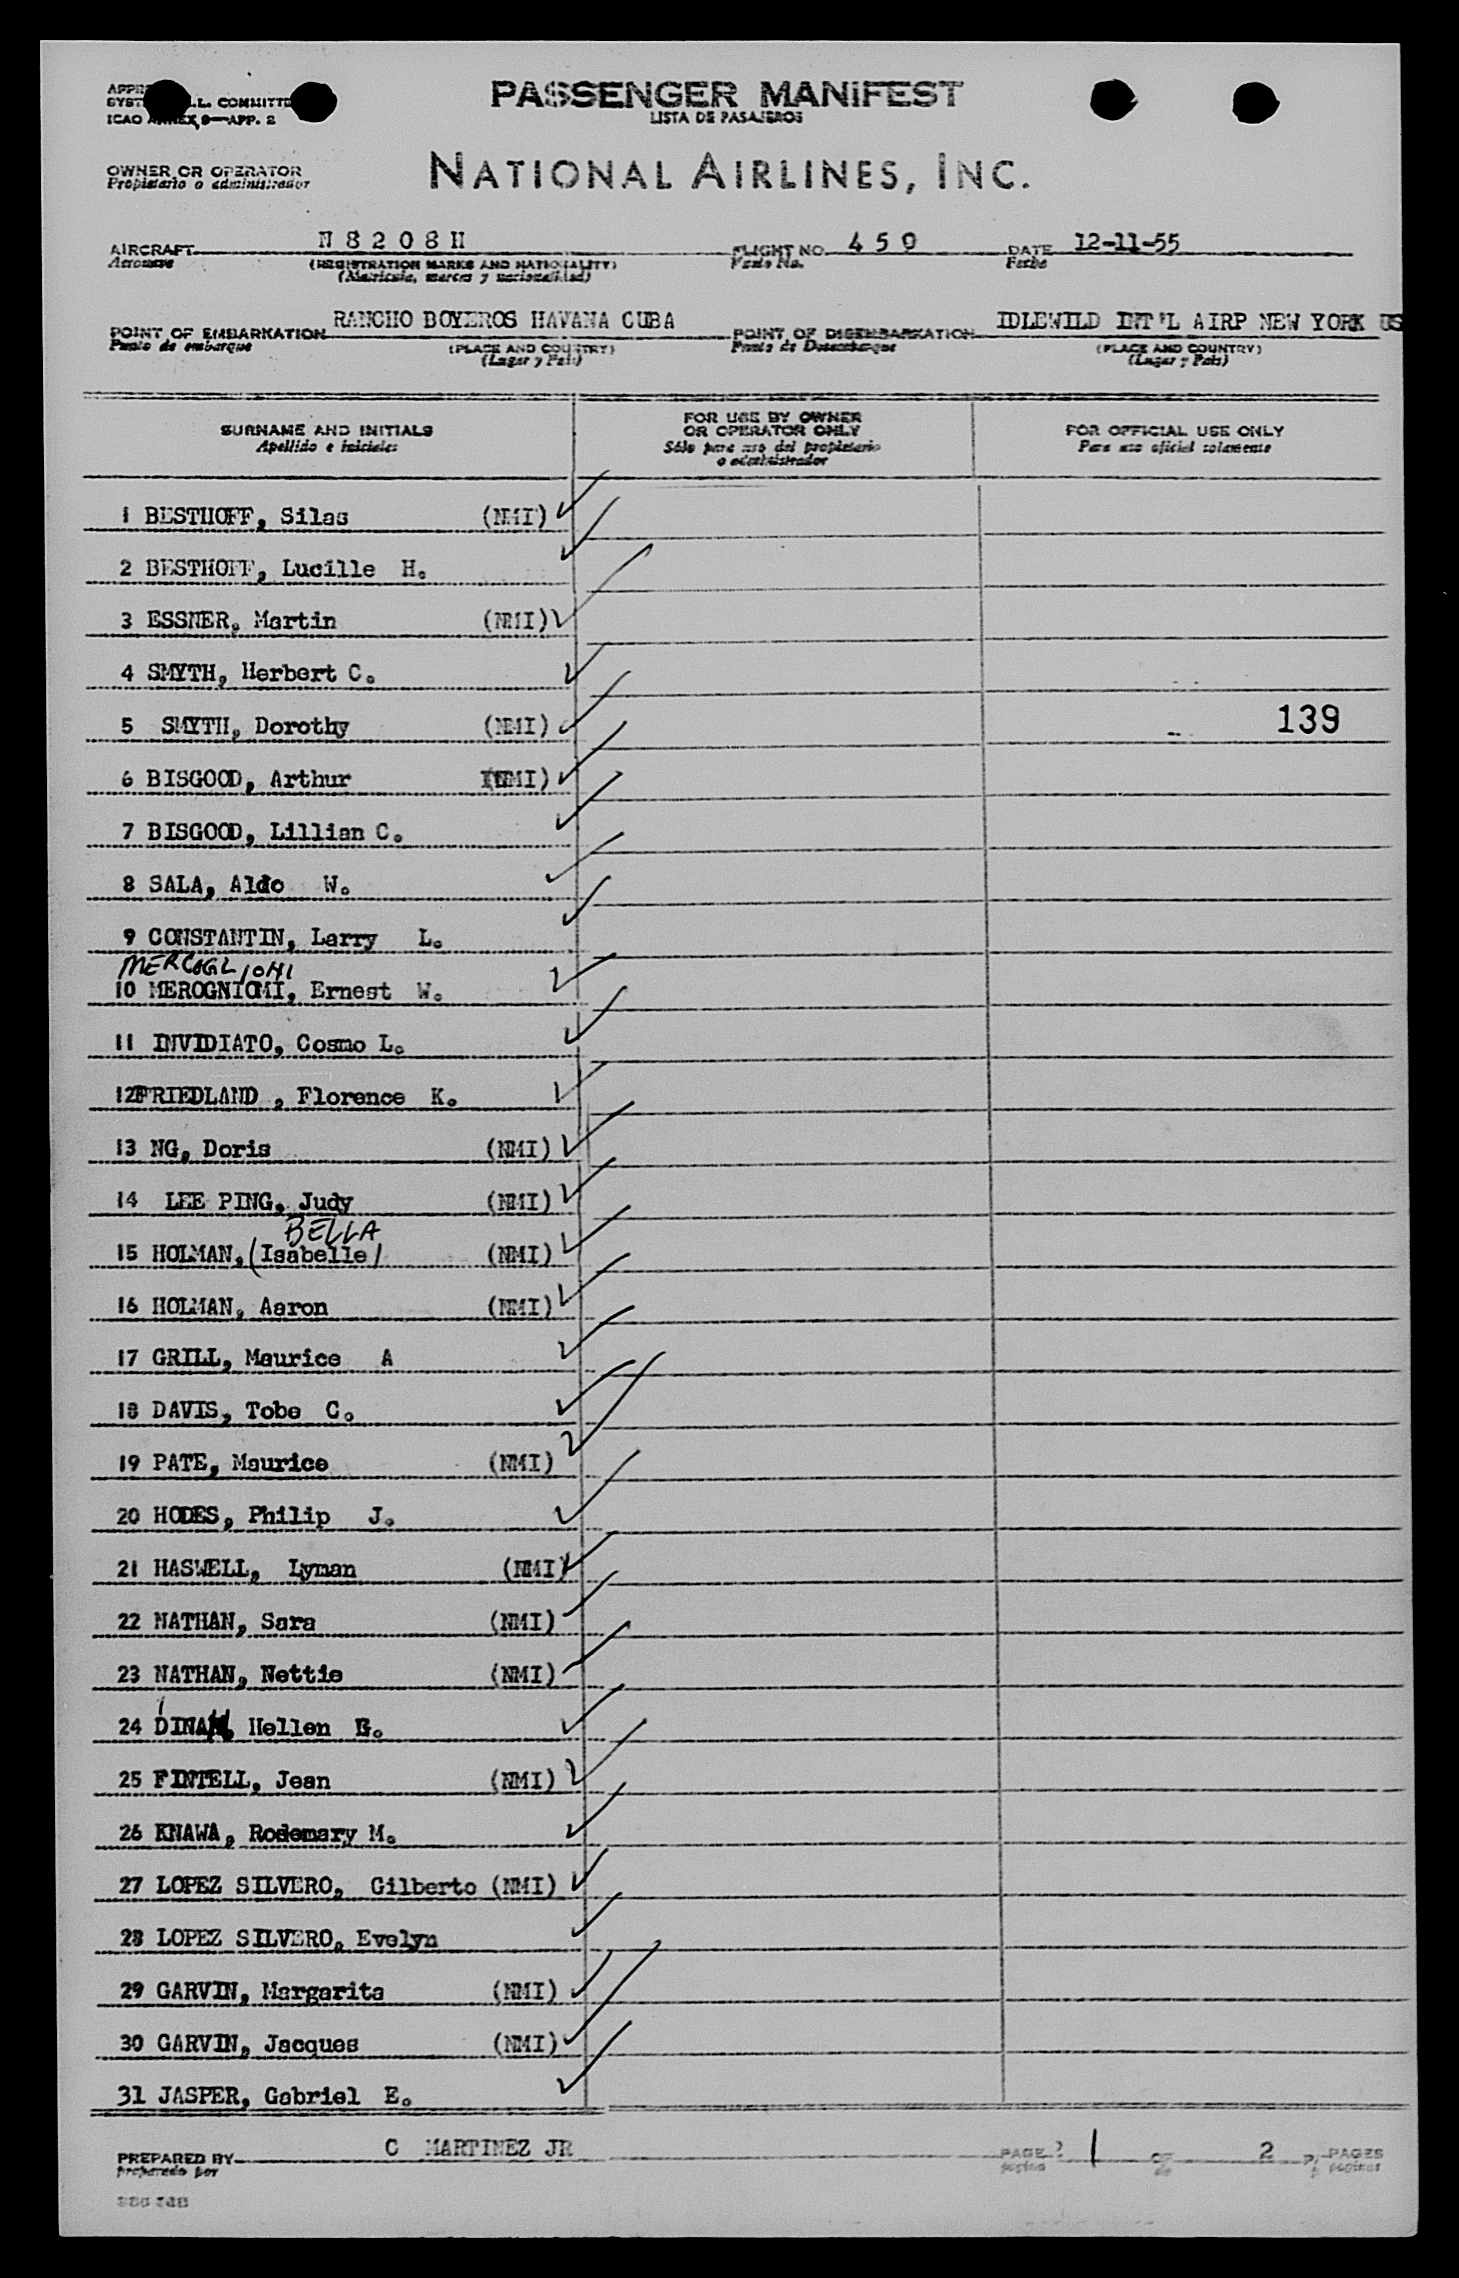 PASSENGER MANIFEST
LISTA DE PASAJEROS
L. COMMITTEE
ICAO ANNEX 9—APP. 2
OWNER OR OPERATOR
Propietario o administrador
NATIONAL AIRLINES, INC.
AIRCRAFT N 8 2 0 8 H FLIGHT NO. 4 5 0 DATE 12-11-55
Aeronave (REGISTRATION MARKS AND NATIONALITY) Vuelo No. Fecha
(Matricula, marcas y nacionalidad)
POINT OF EMBARKATION RANCHO BOYEROS HAVANA CUBA POINT OF DISEMBARKATION IDLEWILD INT'L AIRP NEW YORK US
Punto de embarque (PLACE AND COUNTRY) Punto de Desembarque (PLACE AND COUNTRY)
(Lugar y Pais) (Lugar y Pais)
SURNAME AND INITIALS FOR USE BY OWNER OR OPERATOR ONLY FOR OFFICIAL USE ONLY
Apellido e iniciales Sólo para uso del propietario o administrador Para uso oficial solamente
1 BESTHOFF, Silas (NMI)
2 BESTHOFF, Lucille H.
3 ESSNER, Martin (NMI)
4 SMYTH, Herbert C.
5 SMYTH, Dorothy (NMI) 139
6 BISGOOD, Arthur (NMI)
7 BISGOOD, Lillian C.
8 SALA, Aldo W.
9 CONSTANTIN, Larry L.
MERCOGLIONI
10 MEROGNIOMI, Ernest W.
11 INVIDIATO, Cosmo L.
12 FRIEDLAND , Florence K.
13 NG, Doris (NMI)
14 LEE PING, Judy (NMI)
BELLA
15 HOLMAN, (Isabelle) (NMI)
16 HOLMAN, Aaron (NMI)
17 GRILL, Maurice A
18 DAVIS, Tobe C.
19 PATE, Maurice (NMI)
20 HODES, Philip J.
21 HASWELL, Lyman (NMI)
22 NATHAN, Sara (NMI)
23 NATHAN, Nettie (NMI)
24 DINAH, Hellen B.
25 FINTELL, Jean (NMI)
26 KNAWA, Rodemary M.
27 LOPEZ SILVERO, Gilberto (NMI)
28 LOPEZ SILVERO, Evelyn
29 GARVIN, Margarita (NMI)
30 GARVIN, Jacques (NMI)
31 JASPER, Gabriel E.
PREPARED BY C MARTINEZ JR PAGE 1 OF 2 PAGES
preparado por pagina de paginas